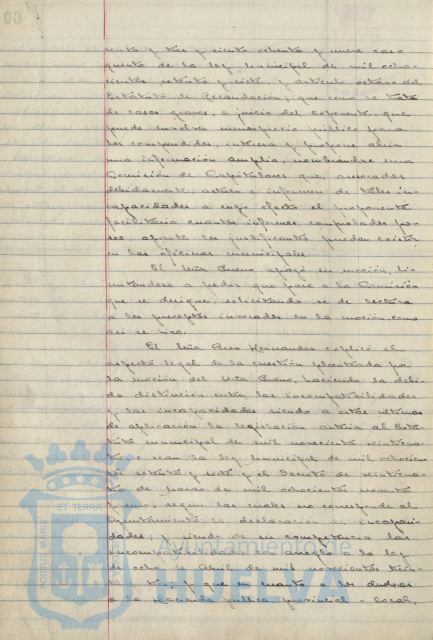 renta y tres y ciento ochenta y nueve caso
quinto de la ley Municipal de mil ocho-
cientos setenta y siete, y artículo octavo del
Estatuto de Recaudación, que como se trata
de casos graves, a juicio del exponente, que
puede envolver menosprecio público para
los comprendidos, interesa y propone abrir
una información amplia, nombrándose una
Comisión de Capitulares que, asesorados
debidamente, actúen e informen de tales in-
capacidades a cuyo efecto el proponente
facilitaría cuantos informes comprobados po-
see, aparte los justificantes puedan existir
en las oficinas municipales.
El Señor Bueno apoyó su moción, li-
mitándose a pedir que pase a la Comisión
que se designe, solicitando se dé lectura
a los preceptos invocados en la moción, como
así se hizo.
El Señor Hernández explicó el
aspecto legal de la cuestión planteada por
la moción del Señor Bueno, haciendo la debi-
da distinción entre las incompatibilidades
y las incapacidades siendo a estas últimas
de aplicación la legislación anterior al Esta-
tuto municipal de mil novecientos veinticua-
tro o sean la ley municipal de mil ochocien-
tos setenta y siete y el Decreto de veinticua-
tro de marzo de mil ochocientos noventa
y uno, según las cuales no corresponde al
Ayuntamiento la declaración de incapaci-
dades; siendo de su competencia las
incompatibilidades con arreglo a la ley
de ocho de Abril de mil novecientos trein-
ta y tres; y que en cuanto a los deudores
a la Hacienda pública, provincial o local,
ET TERRA
PORTUS MARIS
Ayuntamiento de
HUELVA